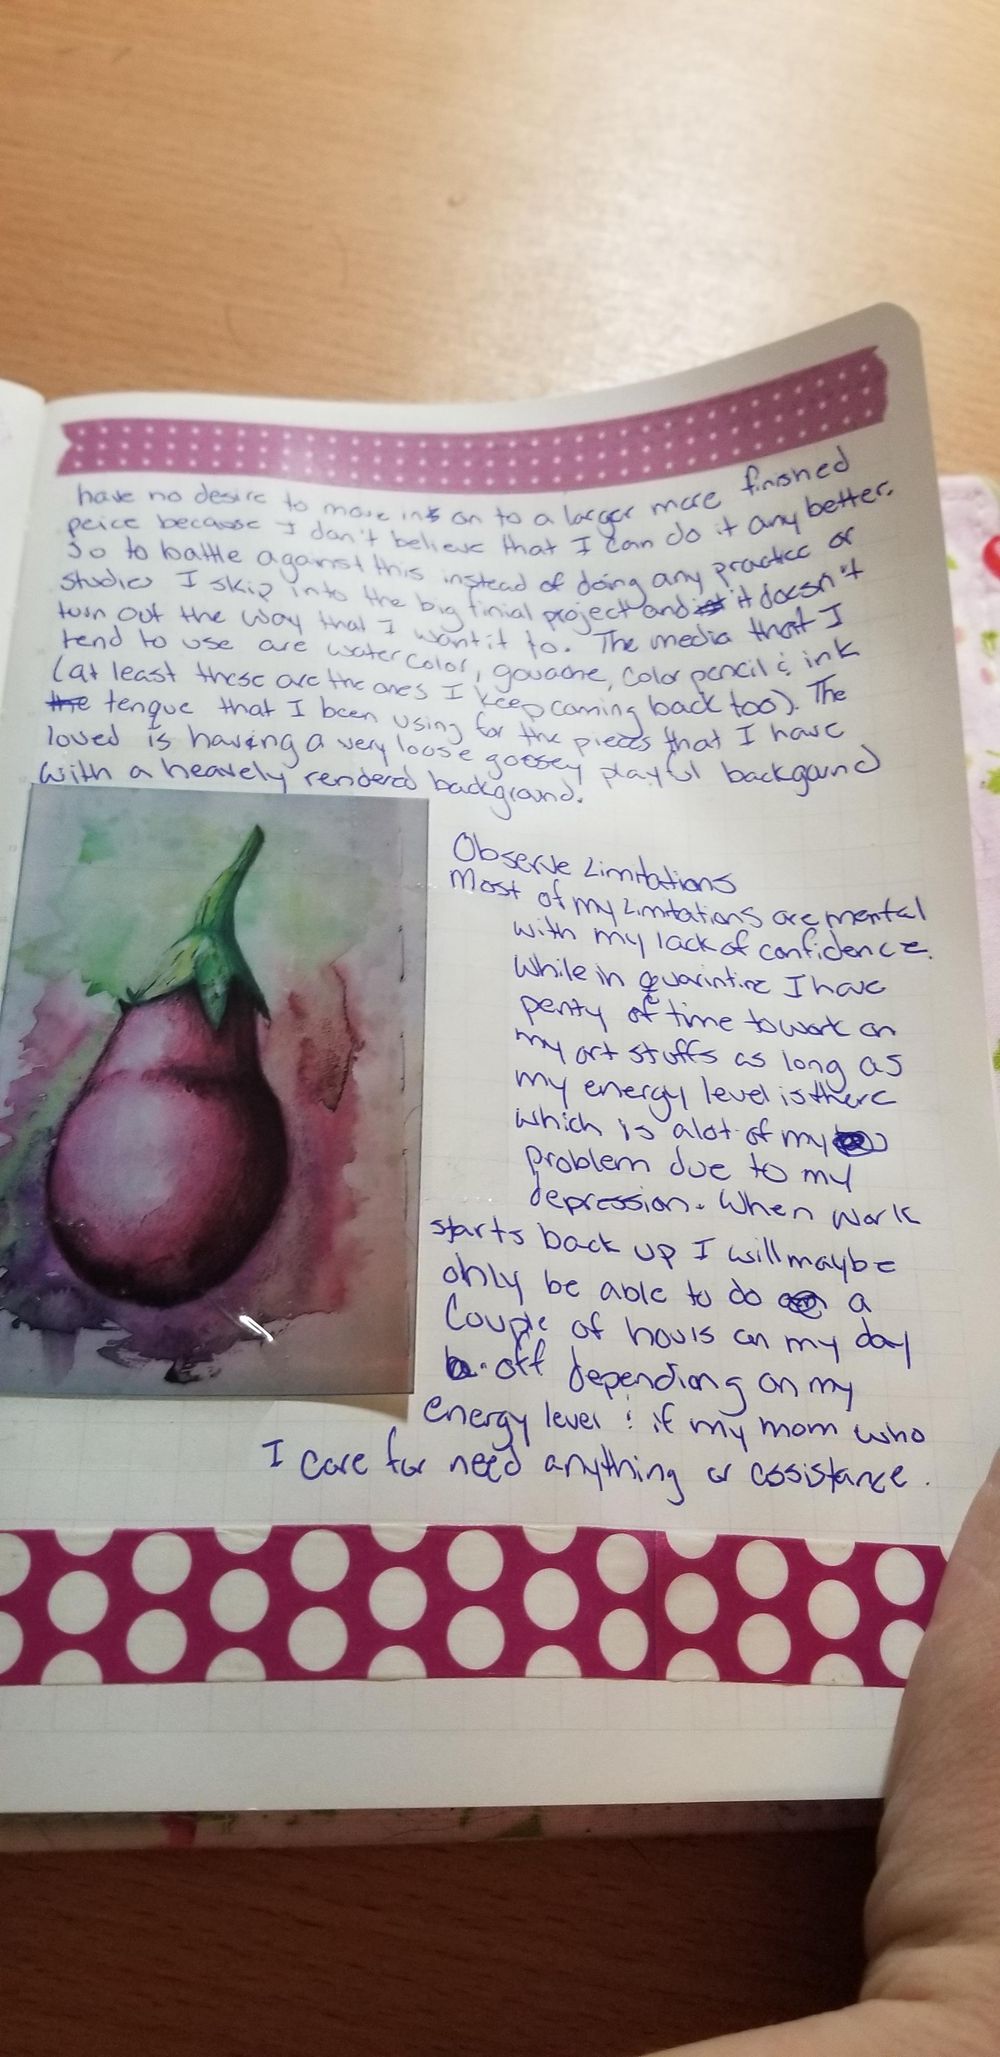 have no desire to move in on to a larger more finished
peice because I don't believe that I can do it any better.
So to battle against this instead of doing any practice or
studies I skip into the big finial project and it doesn't
turn out the way that I want it to. The media that I
tend to use are water color, gouache, color pencil & ink
(at least these are the ones I keep coming back too). The
tenque that I been using for the pieces that I have
loved is having a very loose goosey playful backgound
with a heavely rendered background.
Observe Limitations
Most of my Limitations are mental
with my lack of confidence.
While in quarintine I have
penty of time to work on
my art stuffs as long as
my energy level is there
which is alot of my
problem due to my
depression. When work
starts back up I will maybe
only be able to do a
Couple of hours on my day
off depending on my
energy level & if my mom who
I care for need anything or assistance.